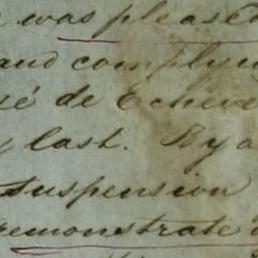 was pleased
and complyin
sé de Echeve
y last. By a
suspension
remonstrate